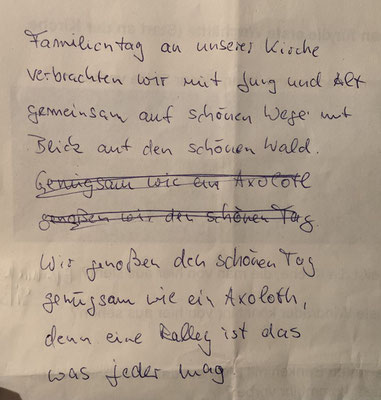 Familientag an unseres Kirche
verbrachten wir mit Jung und Alt
gemeinsam auf schönen Wege mit
Blick auf den schönen Wald.
Genügsam wie ein Axolotl
genoßen wir den schönen Tag.
Wir genoßen den schönen Tag
genügsam wie ein Axoloth,
denn eine Ralley ist das
was jeder mag